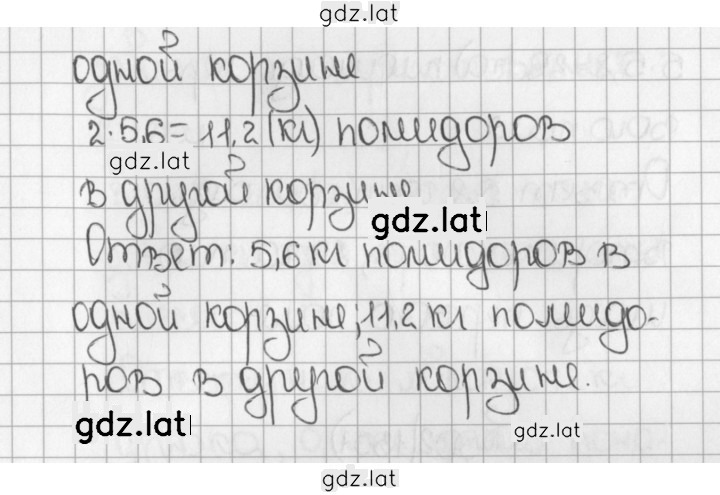 gdz.lat
одной корзине
2·5,6=11,2 (кг) помидоров
gdz.lat
в другой корзине
gdz.lat
Ответ: 5,6 кг помидоров в
одной корзине; 11,2 кг помидо-
ров в другой корзине.
gdz.lat
gdz.lat
gdz.lat